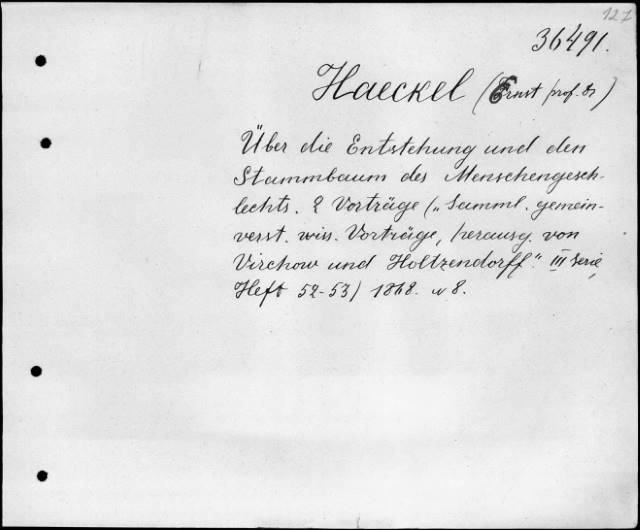 127
36491.
Haeckel (Ernst prof. Dr)
Über die Entstehung und den
Stammbaum des Menschengesch-
lechts. 2 Vorträge („Samml. gemein-
verst. wiss. Vorträge, herausg. von
Virchow und Holtzendorff." III Serie,
Heft 52-53) 1868. w 8.